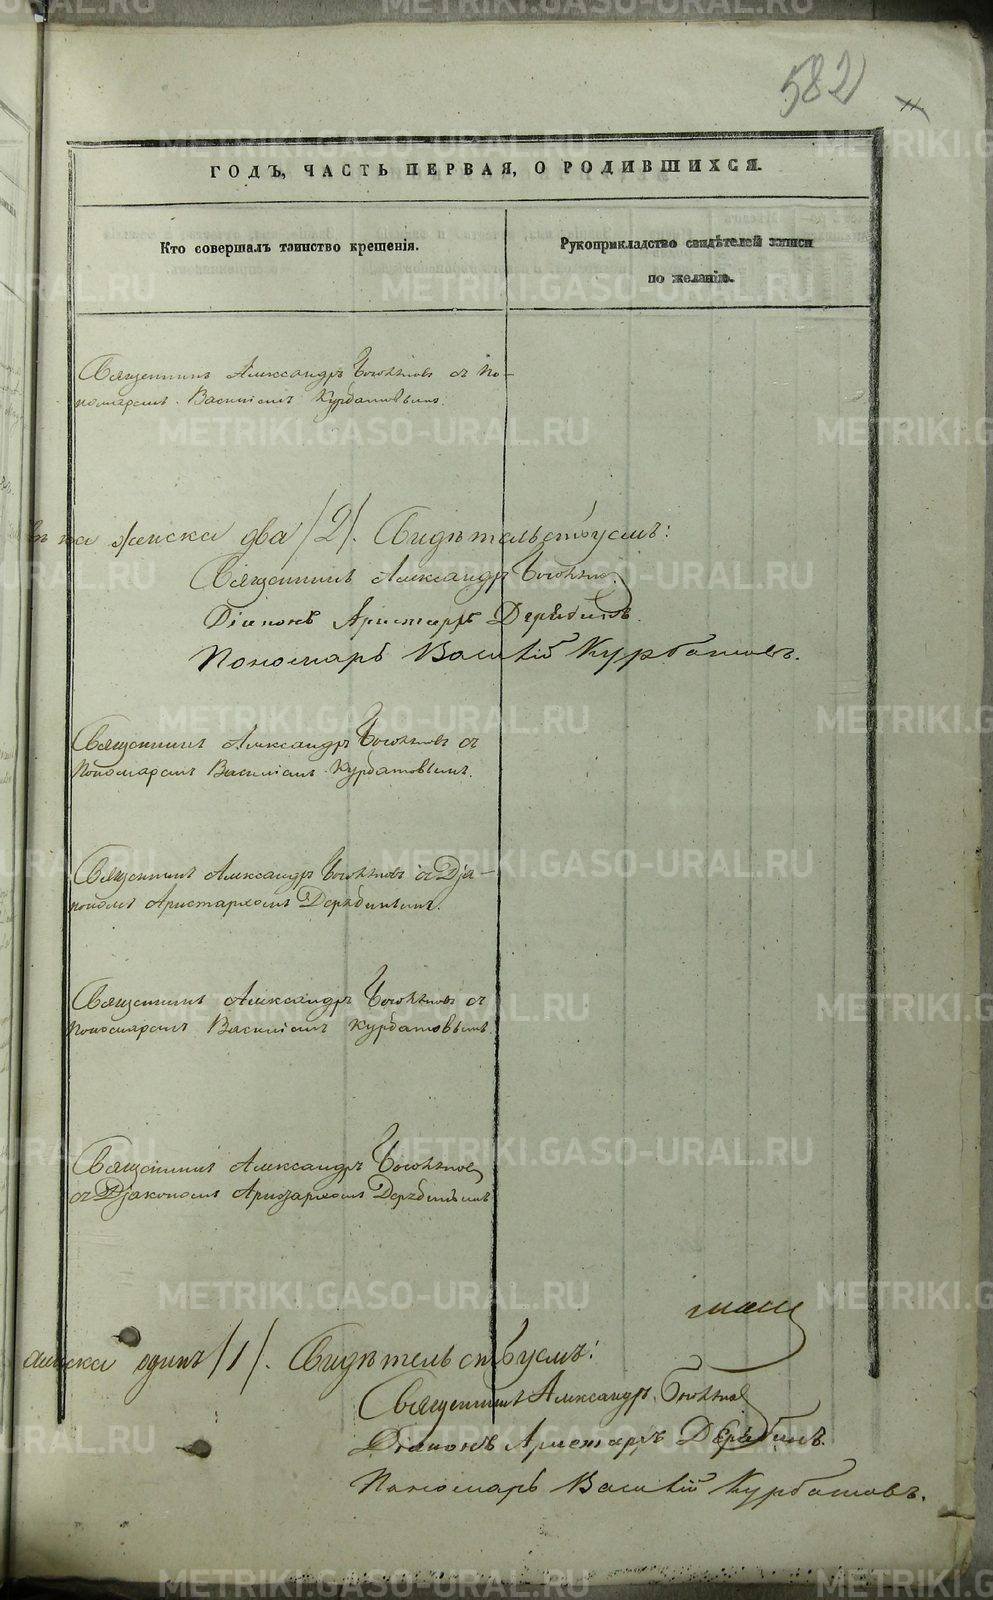 582
11.
ГОДЪ, ЧАСТЬ ПЕРВАЯ, О РОДИВШИХСЯ.
Кто совершалъ таинство крещенія.
Рукоприкладство свидѣтелей записи
по желанію.
Священникъ Александръ съ по-
номаремъ Василіемъ Курбатовымъ.
женска два /2/. Свидѣтельствуемъ:
Священникъ Александръ
Діаконъ Аристархъ Дерябинъ.
Пономарь Василій Курбатовъ.
Священникъ Александръ съ
Пономаремъ Василіемъ Курбатовымъ.
Священникъ Александръ съ Дья-
кономъ Аристархомъ Дерябинымъ.
Священникъ Александръ съ
Пономаремъ Василіемъ Курбатовымъ.
Священникъ Александръ
съ Дьякономъ Аристархомъ Дерябинымъ
одинъ /1/. Свидѣтельствуемъ:
Священникъ Александръ
Діаконъ Аристархъ Дерябинъ.
Пономарь Василій Курбатовъ.
METRIKI.GASO-URAL.RU